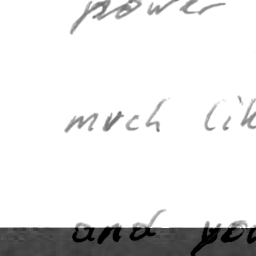 power
much lik
and you